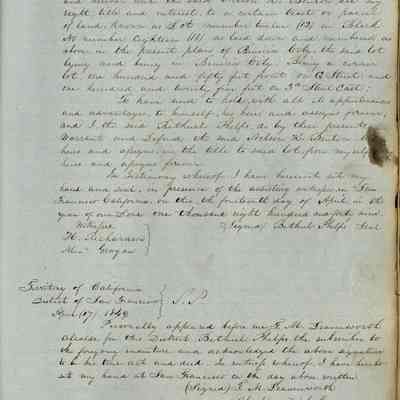 right title and interest to a certain tract or parcel
of land, known as Lot number twelve (12) in Block
No number Eighteen (18) as laid down and numbered as
above in the present plan of Benicia City, the said lot
lying and being in Benicia City. Being a corner
lot one hundred and fifty feet front on G Street and
one hundred and twenty five feet on 3rd Street East;
To have and to hold, with all its appurtenances
and advantages to himself, his heirs and assigns forever,
and I the said Bethuel Phelps do by these presents
Warrant and Defend, the said
heirs and assigns, in the title to said lot, from myself
heirs and assigns forever
In testimony whereof I have hereunto set my
hand and seal, in presence of the assisting witnesses, in San
Francisco California, on this the fourteenth day of April in the
year of our Lord one thousand eight hundred and forty nine
Witnesses
(Signed) Bethuel Phelps Seal
H. Richardson
Territory of California
District of San Francisco } S.S
April (17) 1849
Personally appeared before me
Alcalde for this District, Bethuel Phelps, the subscriber to
the foregoing indenture and acknowledged the above signature
to be his true act and deed. In witness whereof I have hereto
set my hand at San Francisco on the day above written
(Signed)